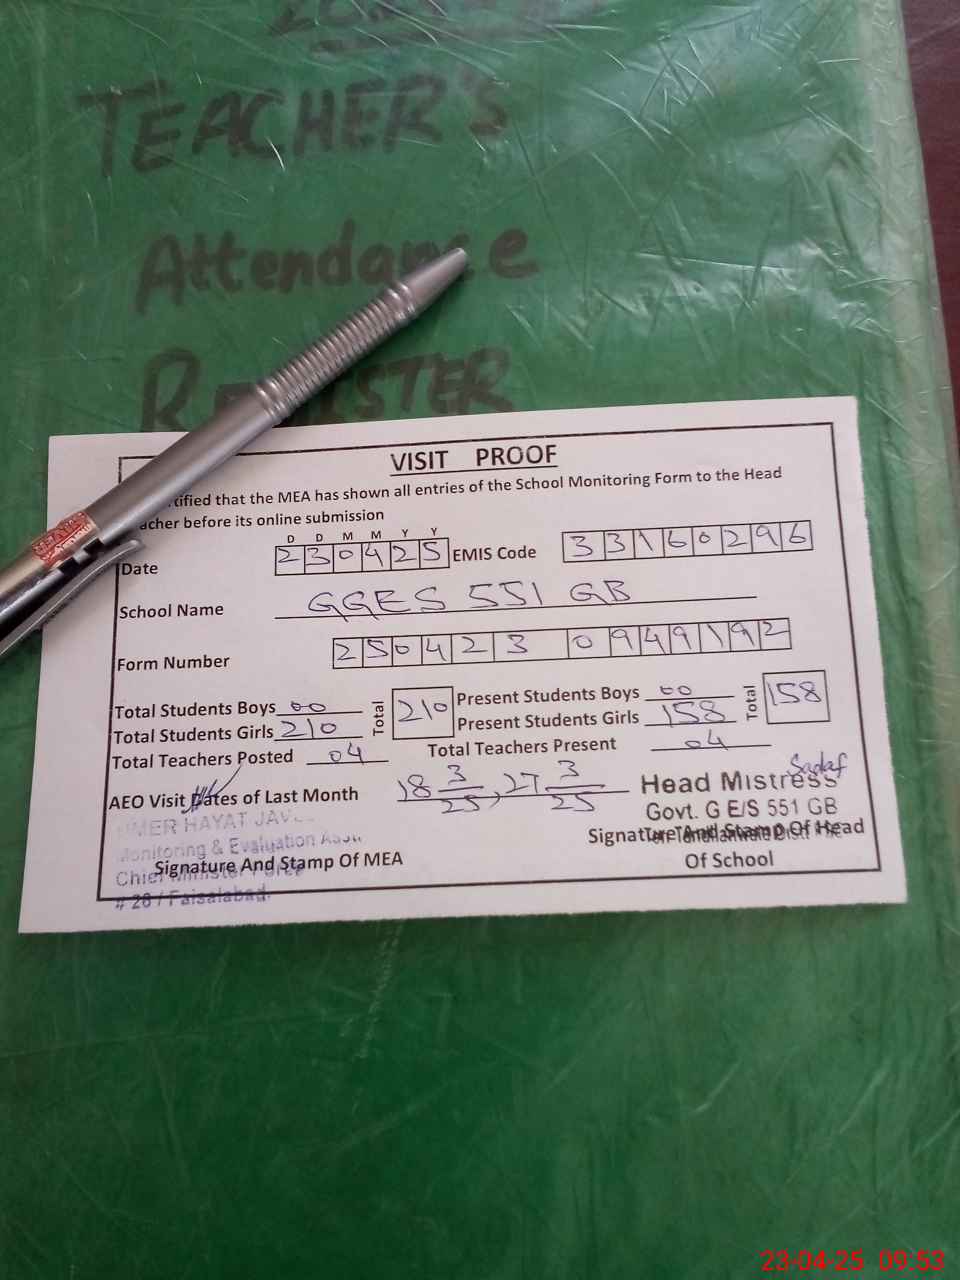 TEACHER'S
Attendance
REGISTER
VISIT PROOF
tified that the MEA has shown all entries of the School Monitoring Form to the Head
acher before its online submission
D D M M Y Y
Date 230425 EMIS Code 33160296
School Name GGES 551 GB
Form Number 250423 0949192
Total Students Boys 00 Total 210 Present Students Boys 00 Total 158
Total Students Girls 210 Present Students Girls 158
Total Teachers Posted 04 Total Teachers Present 04
AEO Visit Dates of Last Month 18 3/25, 27 3/25
Sadaf
Head Mistress
Govt. G E/S 551 GB
UMER HAYAT
Monitoring & Evaluation
Chief Minister
# 26 / Faisalabad.
Signature And Stamp Of MEA
Signature And Stamp Of Head
Of School
23-04-25 09:53